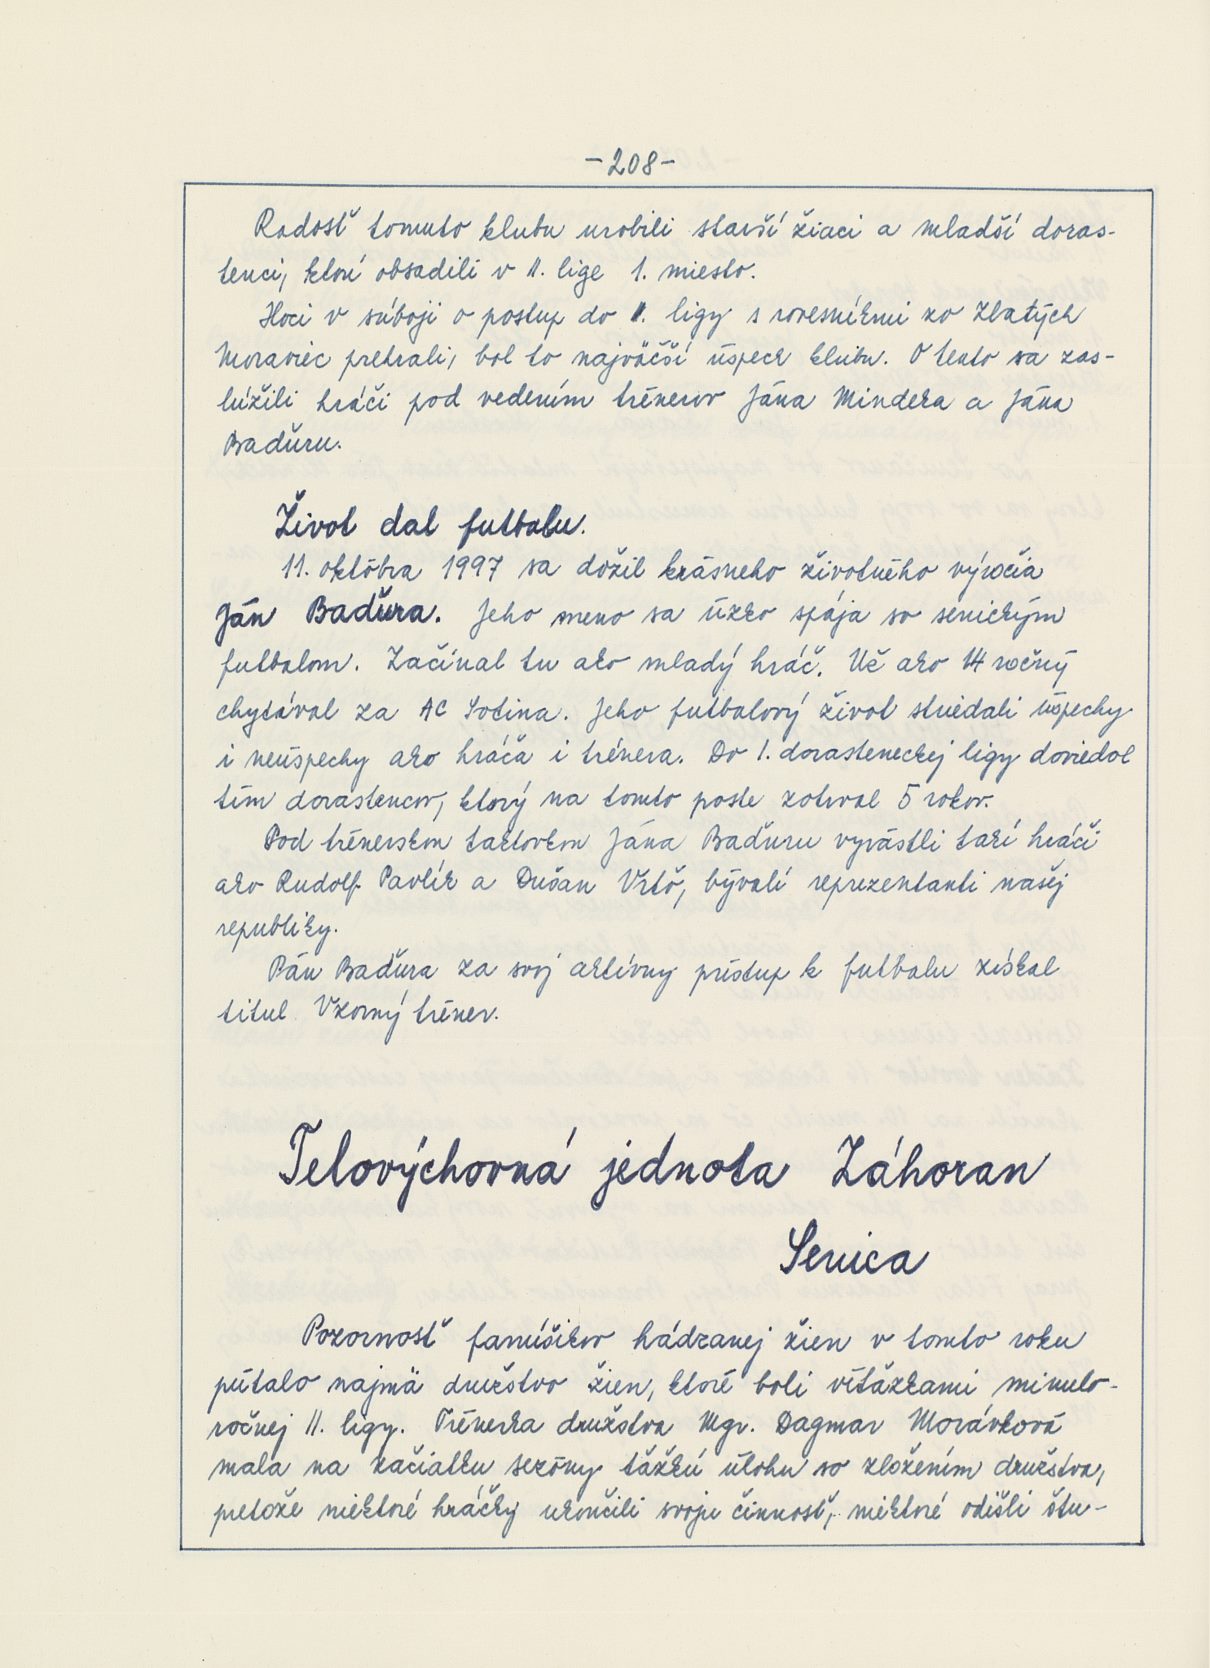 -208-
Radosť tomuto klubu urobili starší žiaci a mladší doras-
tenci, ktorí obsadili v II. lige 1. miesto.
Hoci v súboji o postup do II. ligy s rovesníkmi zo Zlatých
Moraviec prehrali, bol to najväčší úspech klubu. O tento sa zas-
lúžili hráči pod vedením trénerov Jána Mindeka a Jána
Baďuru.
Život dal futbalu.
11. októbra 1997 sa dožil krásneho životného výročia
Ján Baďura. Jeho meno sa úzko spája so senickým
futbalom. Začínal tu ako mladý hráč. Už ako 14 ročný
chytával za AC Sotina. Jeho futbalový život striedali úspechy
i neúspechy ako hráča i trénera. Do 1. dorasteneckej ligy doviedol
tím dorastencov, ktorý na tomto poste zotrval 5 rokov.
Pod trénerskou taktovkou Jána Baďuru vyrástli takí hráči
ako Rudolf Pavlík a Dušan Vrťo, bývalí reprezentanti našej
republiky.
Pán Baďura za svoj aktívny prístup k futbalu získal
titul Vzorný tréner.
Telovýchovná jednota Záhoran
Senica
Pozornosť fanúšikov hádzanej žien v tomto roku
pútalo najmä družstvo žien, ktoré boli víťazkami minulo-
ročnej II. ligy. Trénerka družstva Mgr. Dagmar Morávková
mala na začiatku sezóny ťažkú úlohu so zložením družstva,
pretože niektoré hráčky ukončili svoju činnosť, niektoré odišli štu-